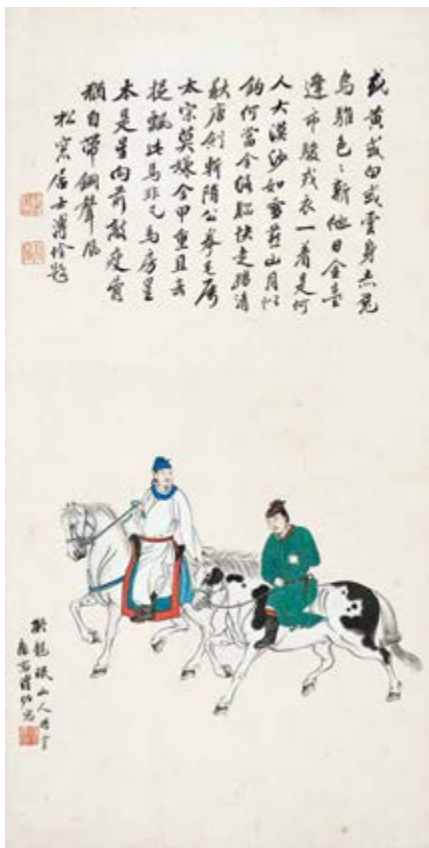 或黃或白或雲身赤兔
烏騅色々新他日金臺
逢市駿戎衣一着是何
人大漠沙如雪燕山月似
鈎何當金絡腦快走踏清
秋唐劍斬隋公拳毛屬
太宗莫嫌金甲重且去
捉飄此馬非凡馬房星
本是星向前敲瘦骨
猶自帶銅聲風
松窓居士溥佺題
龍眠山人